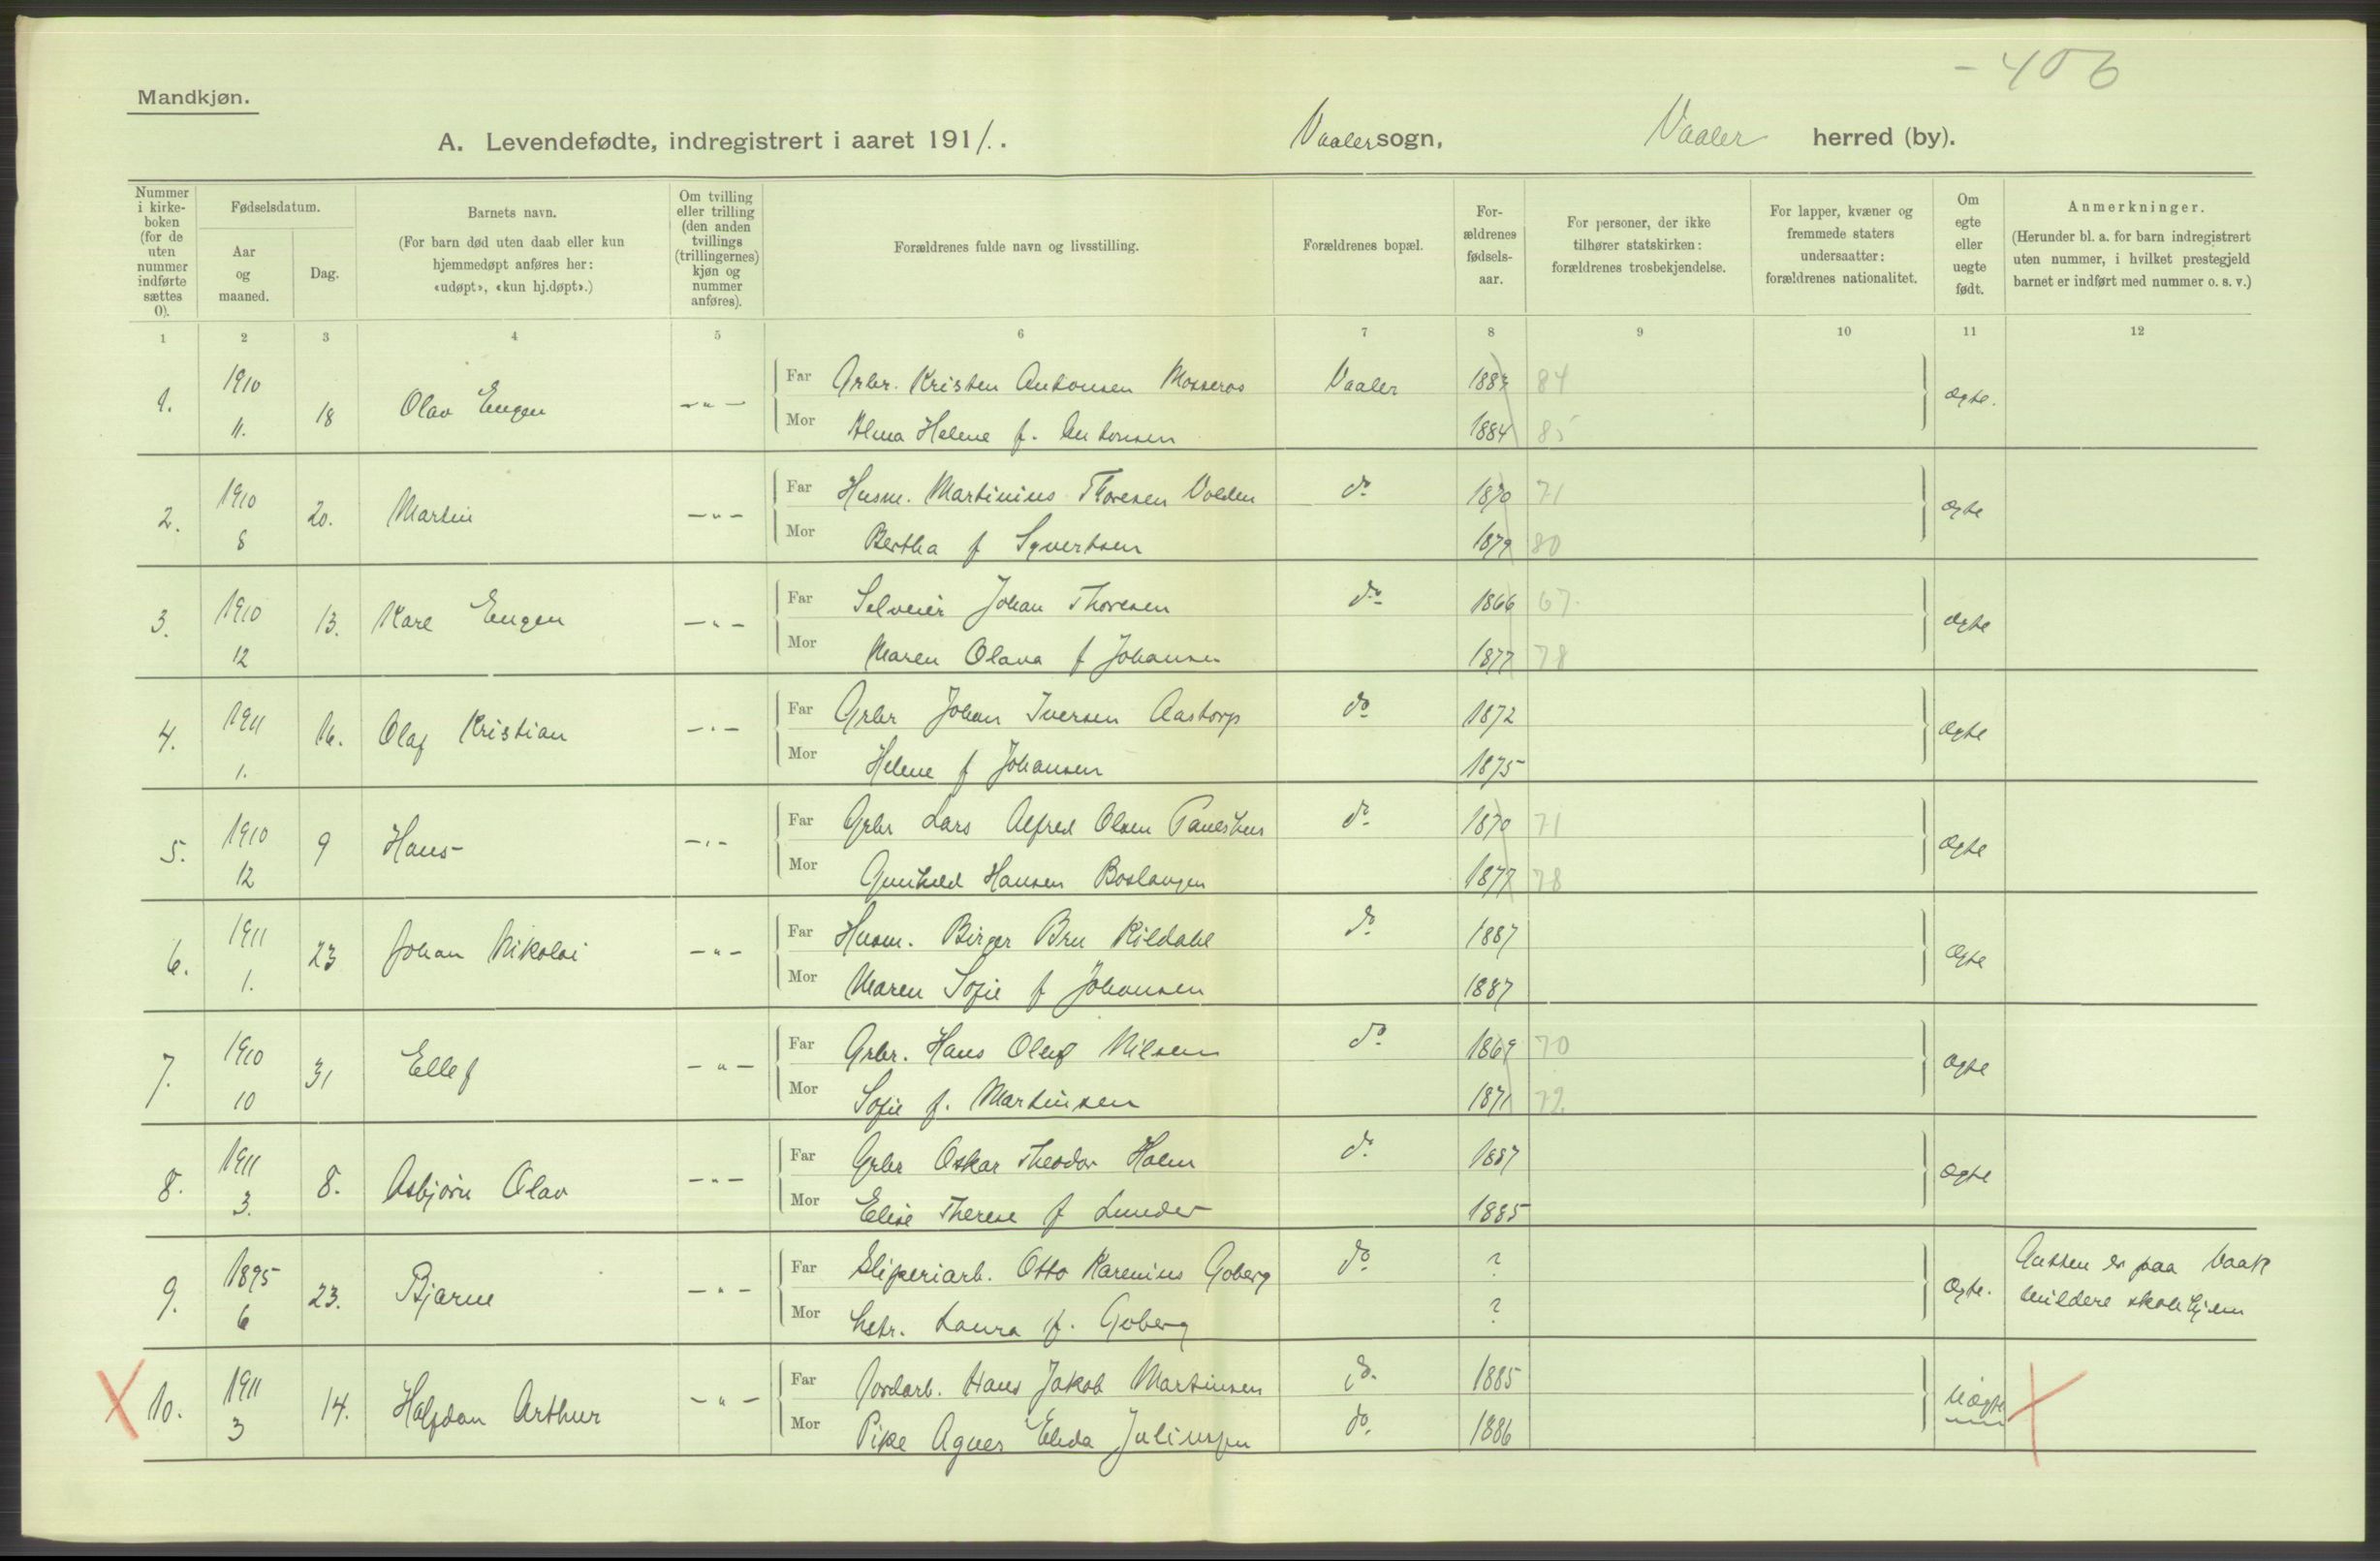 - 406
Mandkjøn.
A. Levendefødte, indregistrert i aaret 1911. Vaaler sogn, Vaaler herred (by).
Nummer i kirke-boken (for de uten nummer indførte sættes 0).
Fødselsdatum.
Aar og maaned.
Dag.
Barnets navn.
(For barn død uten daab eller kun hjemmedøpt anføres her: «udøpt», «kun hj.døpt».)
Om tvilling eller trilling (den anden tvillings (trillingernes) kjøn og nummer anføres).
Forældrenes fulde navn og livsstilling.
Forældrenes bopæl.
For-ældrenes fødsels-aar.
For personer, der ikke tilhører statskirken: forældrenes trosbekjendelse.
For lapper, kvæner og fremmede staters undersaatter: forældrenes nationalitet.
Om egte eller uegte født.
Anmerkninger.
(Herunder bl. a. for barn indregistrert uten nummer, i hvilket prestegjeld barnet er indført med nummer o. s. v.)
1 2 3 4 5 6 7 8 9 10 11 12
1. 1910 11. 18 Olav Eugen -"- Far Grbr. Kristen Antonsen Mosseros Vaaler 1883 84 ægte.
Mor Alma Helene f. Antonsen 1884 85
2. 1910 8 20. Martin -"- Far Husm. Martinius Thoresen Volden do 1870 71 ægte
Mor Bertha f Syvertsen 1879 80
3. 1910 12 13. Kare Eugen -"- Far Selveier Johan Thoresen do 1866 67. ægte
Mor Maren Olava f Johansen 1877 78
4. 1911 1. 16. Olaf Kristian -"- Far Grbr Johan Iversen Aastorp do 1872 ægte
Mor Helene f Johansen 1875
5. 1910 12 9 Hans -"- Far Grbr Lars Alfred Olsen do 1870 71 ægte
Mor Gunhild Hansen Boslangen 1877 78
6. 1911 1. 23 Johan Nikolai -"- Far Husm. Birger Bru Kildahl do 1887 ægte
Mor Maren Sofie f Johansen 1887
7. 1910 10 31 Ellef -"- Far Grbr. Hans Oluf Nilsen do 1869 70 ægte
Mor Sofie f. Martinsen 1871 72
8. 1911 3. 8. Asbjørn Olav -"- Far Grbr Oskar Theodor Holm do 1887 ægte
Mor Elise Therese f Lunder 1885
9. 1895 6 23. Bjarne -"- Far Sliperiarb. Otto Karenius Goberg do ? ægte. Gutten er paa Vaak
Mor hstr. Laura f. Goberg ? mildere skolehjem
10. 1911 3 14. Halfdan Arthur -"- Far Jordarb. Hans Jakob Martinsen do. 1885 uægte
Mor Pike Agnes Elida Juliussen do. 1886